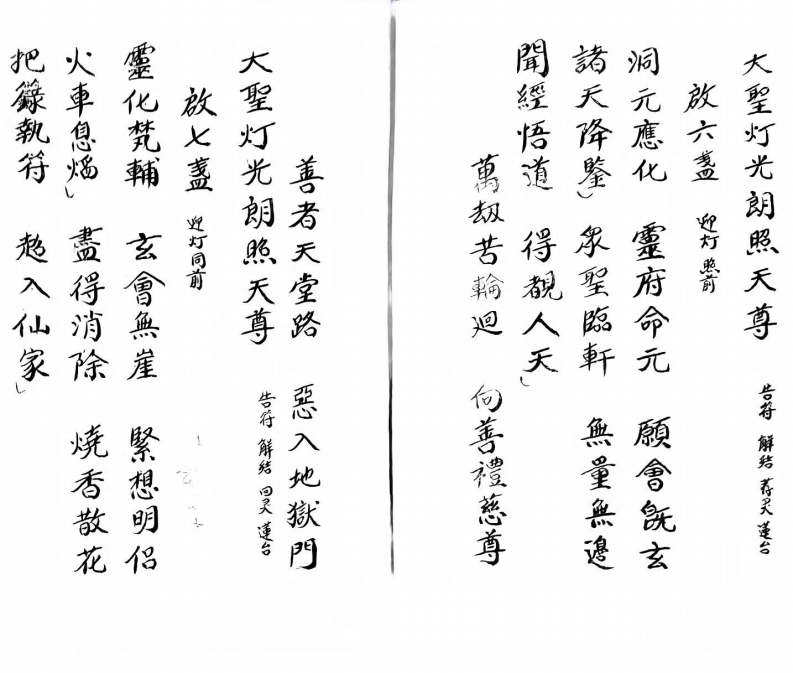 大聖灯光朗照天尊 告符 解結 荐灵 蓮台
啟六盞 迎灯 照前
洞元應化 靈府命元 願會既玄
諸天降鑒 眾聖臨軒 無量無邊
聞經悟道 得覩人天
萬刼苦輪廻 向善禮慈尊
善者天堂路 惡入地獄門
大聖灯光朗照天尊 告符 解結 回灵 蓮台
啟七盞 迎灯同前
靈化梵輔 玄會無崖 緊想明侶
火車息焰 盡得消除 燒香散花
把籙執符 超入仙家